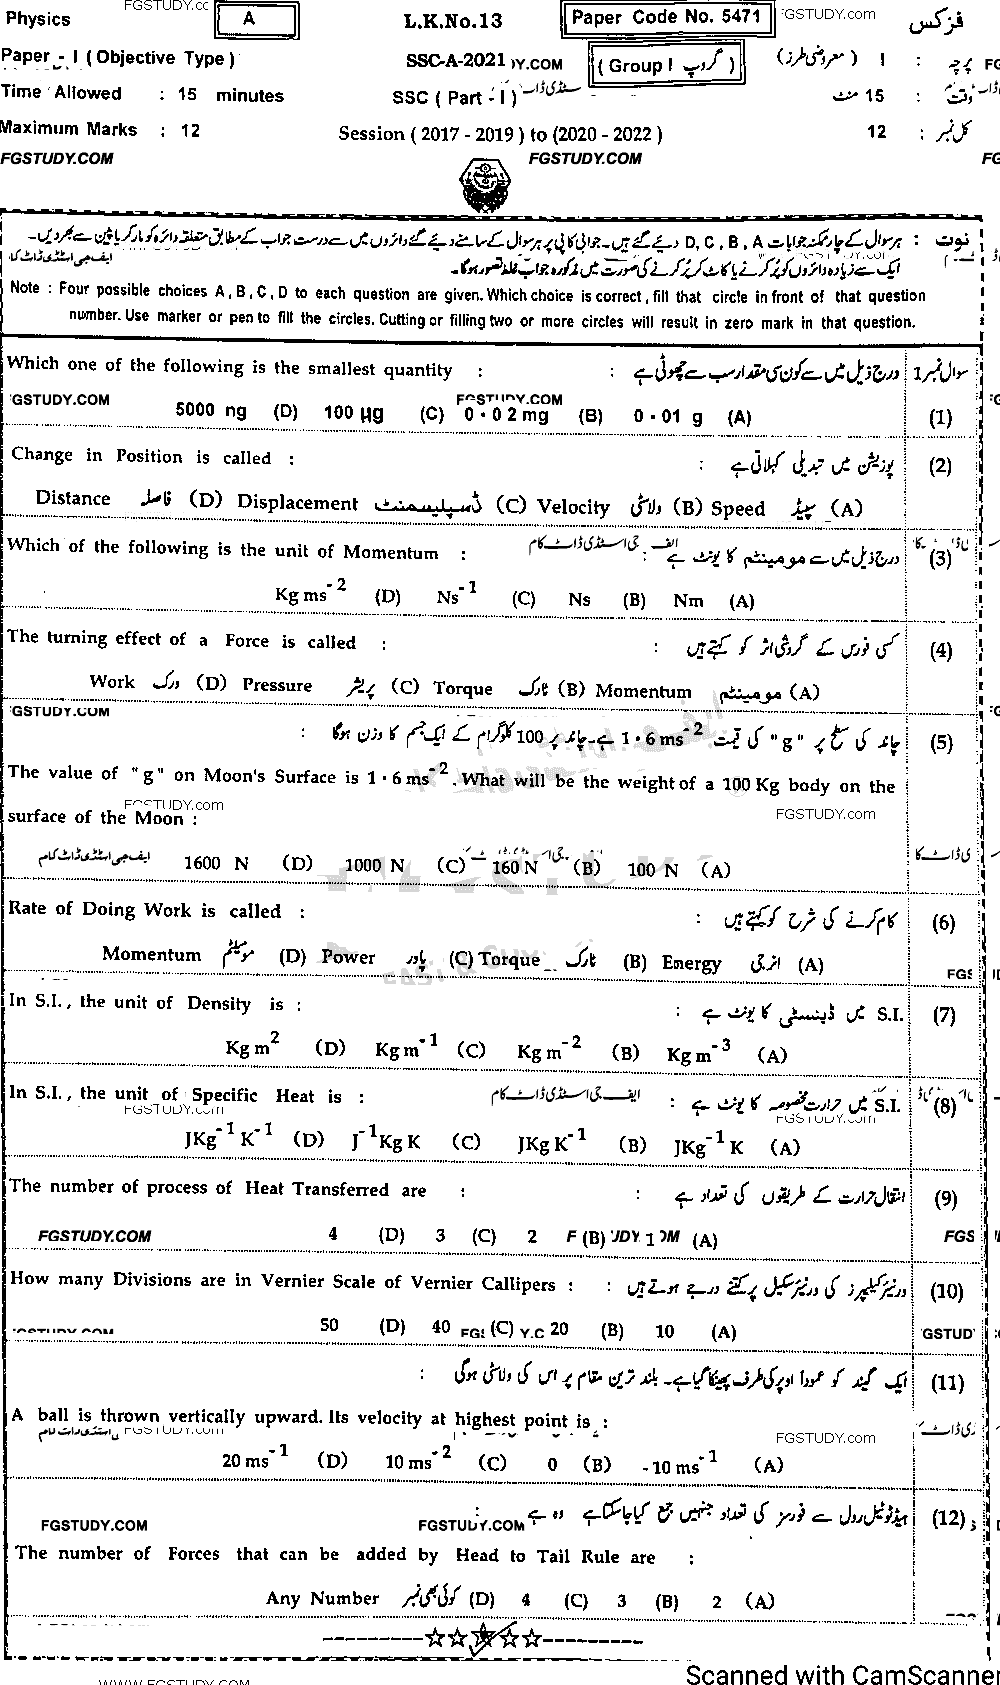 FGSTUDY.CO
Physics A L.K.No.13 Paper Code No. 5471 FGSTUDY.COM فزکس
Paper - I ( Objective Type ) SSC-A-2021 DY.COM ( Group I گروپ ) I ( معروضی طرز ) : پرچہ
Time Allowed : 15 minutes SSC ( Part - I ) 15 منٹ : وقت
Maximum Marks : 12 Session ( 2017 - 2019 ) to (2020 - 2022 ) 12 : کل نمبر
FGSTUDY.COM FGSTUDY.COM FG
نوٹ : ہر سوال کے چار ممکنہ جوابات D, C, B, A دیئے گئے ہیں۔ جوابی کاپی پر ہر سوال کے سامنے دیئے گئے دائروں میں سے درست جواب کے مطابق متعلقہ دائرہ کو مارکر یا پین سے بھر دیں۔
ایک سے زیادہ دائروں کو پُر کرنے یا کاٹ کر پُر کرنے کی صورت میں مذکورہ جواب غلط تصور ہوگا۔
Note : Four possible choices A , B , C , D to each question are given. Which choice is correct , fill that circle in front of that question
number. Use marker or pen to fill the circles. Cutting or filling two or more circles will result in zero mark in that question.
Which one of the following is the smallest quantity : : درج ذیل میں سے کون سی مقدار سب سے چھوٹی ہے سوال نمبر 1
GSTUDY.COM FGSTUDY.COM
5000 ng (D) 100 µg (C) 0·02 mg (B) 0·01 g (A) (1)
Change in Position is called : : پوزیشن میں تبدیلی کہلاتی ہے (2)
Distance فاصلہ (D) Displacement ڈسپلیسمنٹ (C) Velocity ولاسٹی (B) Speed سپیڈ (A)
Which of the following is the unit of Momentum : ایف جی اسٹڈی ڈاٹ کام : درج ذیل میں سے مومینٹم کا یونٹ ہے (3)
Kg ms⁻² (D) Ns⁻¹ (C) Ns (B) Nm (A)
The turning effect of a Force is called : : کسی فورس کے گردشی اثر کو کہتے ہیں (4)
Work ورک (D) Pressure پریشر (C) Torque ٹارک (B) Momentum مومینٹم (A)
GSTUDY.COM
چاند کی سطح پر "g" کی قیمت 1·6 ms⁻² ہے۔ چاند پر 100 کلوگرام کے ایک جسم کا وزن ہوگا : (5)
The value of "g" on Moon's Surface is 1·6 ms⁻². What will be the weight of a 100 Kg body on the
FGSTUDY.com FGSTUDY.com
surface of the Moon :
ایف جی اسٹڈی ڈاٹ کام 1600 N (D) 1000 N (C) 160 N (B) 100 N (A)
Rate of Doing Work is called : : کام کرنے کی شرح کو کہتے ہیں (6)
Momentum مومینٹم (D) Power پاور (C) Torque ٹارک (B) Energy انرجی (A)
FGS
In S.I., the unit of Density is : : S.I. میں ڈینسٹی کا یونٹ ہے (7)
Kg m² (D) Kg m⁻¹ (C) Kg m⁻² (B) Kg m⁻³ (A)
In S.I., the unit of Specific Heat is : ایف جی اسٹڈی ڈاٹ کام : S.I. میں حرارت مخصوصہ کا یونٹ ہے (8)
FGSTUDY.com FGSTUDY.com
JKg⁻¹ K⁻¹ (D) J⁻¹Kg K (C) JKg K⁻¹ (B) JKg⁻¹ K (A)
The number of process of Heat Transferred are : : انتقال حرارت کے طریقوں کی تعداد ہے (9)
FGSTUDY.COM 4 (D) 3 (C) 2 (B) 1 (A) FGS
How many Divisions are in Vernier Scale of Vernier Callipers : : ورنیئر کیلیپرز کی ورنیئر سکیل پر کتنے درجے ہوتے ہیں (10)
50 (D) 40 (C) 20 (B) 10 (A) GSTUD
ایک گیند کو عموداً اوپر کی طرف پھینکا گیا ہے۔ بلند ترین مقام پر اس کی ولاسٹی ہوگی : (11)
A ball is thrown vertically upward. Its velocity at highest point is :
FGSTUDY.com FGSTUDY.com
20 ms⁻¹ (D) 10 ms⁻² (C) 0 (B) -10 ms⁻¹ (A)
ہیڈ ٹو ٹیل رول سے فورسز کی تعداد جنہیں جمع کیا جا سکتا ہے وہ ہے : (12)
FGSTUDY.COM FGSTUDY.COM
The number of Forces that can be added by Head to Tail Rule are :
Any Number کوئی بھی نمبر (D) 4 (C) 3 (B) 2 (A)
----------☆☆☆☆☆----------
Scanned with CamScanner
WWW.FGSTUDY.COM